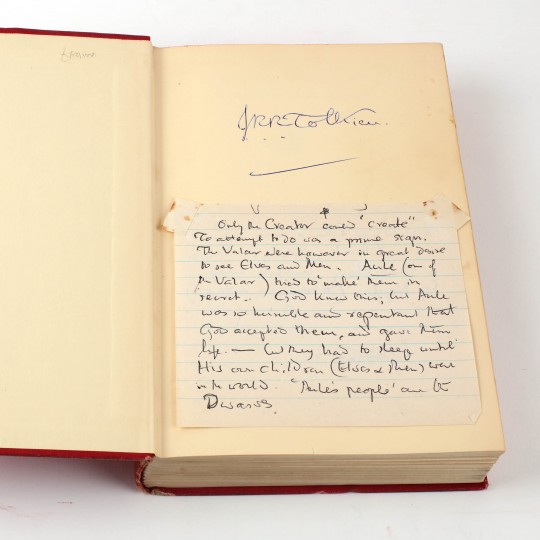 JRRTolkien.
Only the Creator could "create"
To attempt to do was a prime
The Valar were however in great desire
to see Elves and Men. Aule (one of
the Valar) tried to 'make' them in
secret. God knew this, but Aule
was so humble and repentant that
God accepted them, and gave them
life. — but they had to sleep until
His own children (Elves & Men) were
in the world. 'Aule's people' are the
Dwarves.